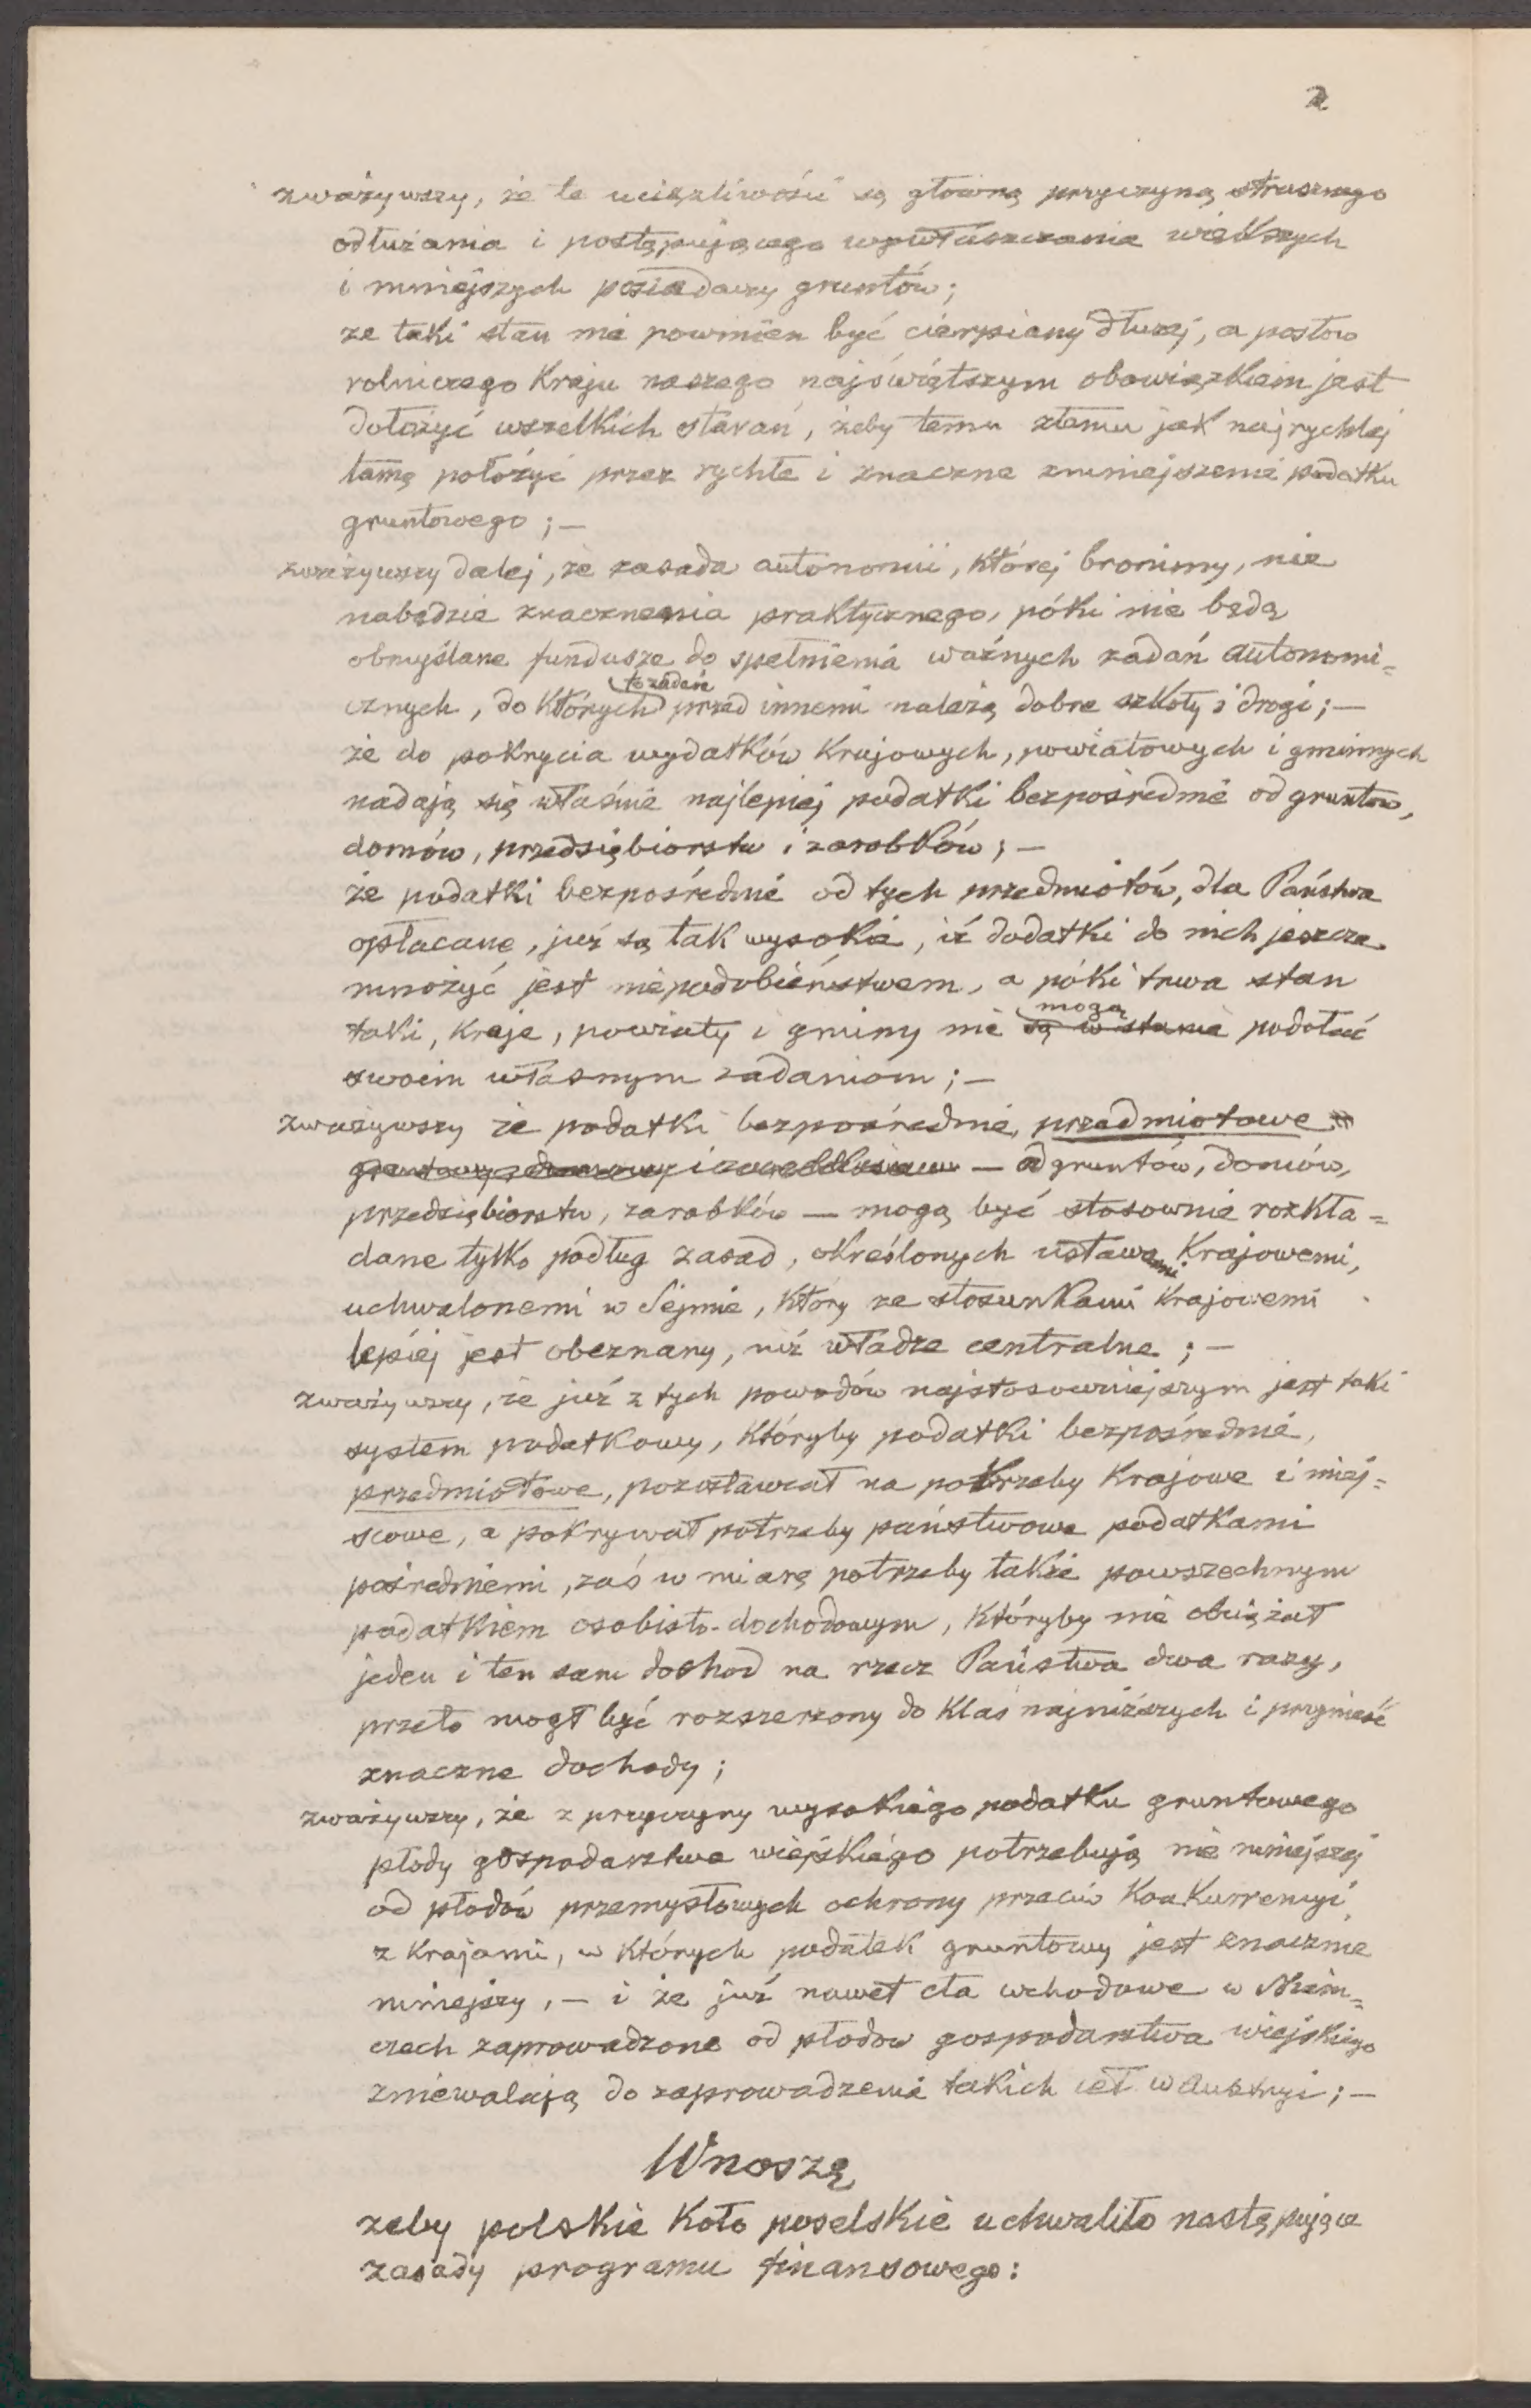 2
zważywszy, że te uciążliwości są główną przyczyną strasznego
odłużania i postępującego wywłaszczania większych
i mniejszych posiadaczy gruntów;
że taki stan nie powinien być cierpiany dłużej, a posłów
rolniczego Kraju naszego najświętszym obowiązkiem jest
dołożyć wszelkich starań, żeby temu złemu jak najrychlej
tamę położyć przez rychłe i znaczne zmniejszenie podatku
gruntowego; —
zważywszy dalej, że zasada autonomii, której bronimy, nie
nabędzie znaczenia praktycznego, póki nie będą
obmyślane fundusze do spełnienia ważnych zadań autonomi=
to zadań
cznych, do których przed innemi należą dobre szkoły i drogi; —
że do pokrycia wydatków Krajowych, powiatowych i gminnych
nadają się właśnie najlepiej podatki bezpośrednie od gruntów,
domów, przedsiębiorstw i zarobków; —
że podatki bezpośrednie od tych przedmiotów, dla Państwa
opłacane, już są tak wysokie, iż dodatki do nich jeszcze
mnożyć jest niepodobieństwem, a póki trwa stan
mogą
taki, Kraje, powiaty i gminy nie są w stanie podołać
swoim własnym zadaniom; —
zważywszy że podatki bezpośrednie, przedmiotowe
— od gruntów, domów,
przedsiębiorstw, zarobków — mogą być stosownie rozkła=
dane tylko podług zasad, określonych ustawami Krajowemi,
uchwalonemi w Sejmie, który ze stosunkami Krajowemi
lepiej jest obeznany, niż władze centralne; —
zważywszy, że już z tych powodów najstosowniejszym jest taki
system podatkowy, któryby podatki bezpośrednie,
przedmiotowe, pozostawiał na potrzeby Krajowe i miej=
scowe, a pokrywał potrzeby państwowe podatkami
pośredniemi, zaś w miarę potrzeby także powszechnym
podatkiem osobisto-dochodowym, któryby nie obciążał
jeden i ten sam dochod na rzecz Państwa dwa razy,
przeto mógł być rozszerzony do Klas najniższych i przynieść
znaczne dochody;
zważywszy, że z przyczyny wysokiego podatku gruntowego
płody gospodarstwa wiejskiego potrzebują nie mniejszej
od płodów przemysłowych ochrony przeciw Konkurrencyi
z krajami, w których podatek gruntowy jest znacznie
mniejszy, — i że już nawet cła wchodowe w Niem=
czech zaprowadzone od płodów gospodarstwa wiejskiego
zniewalają do zaprowadzenia takich ceł w Austryi; —
Wnoszę
żeby polskie Koło poselskie uchwaliło następujące
zasady programu finansowego: